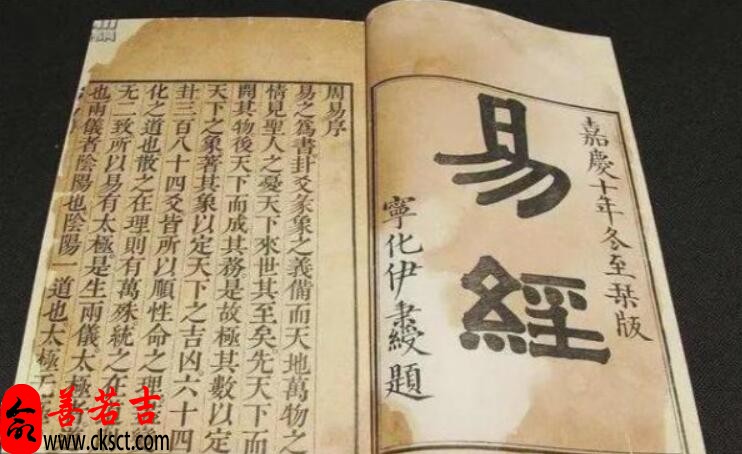 嘉慶十年冬至栞版
易經
寧化伊秉綬題
周易序
易之爲書卦爻彖象之義備而天地萬物之
情見聖人之憂天下來世其至矣先天下而
開其物後天下而成其務是故極其數以定
天下之象著其象以定天下之吉凶六十四
卦三百八十四爻皆所以順性命之理
化之道也散之在理則有萬殊統之在
無二致所以易有太極是生兩儀太極者道
也兩儀者陰陽也陰陽一道也太極无
善若吉
www.cksct.com